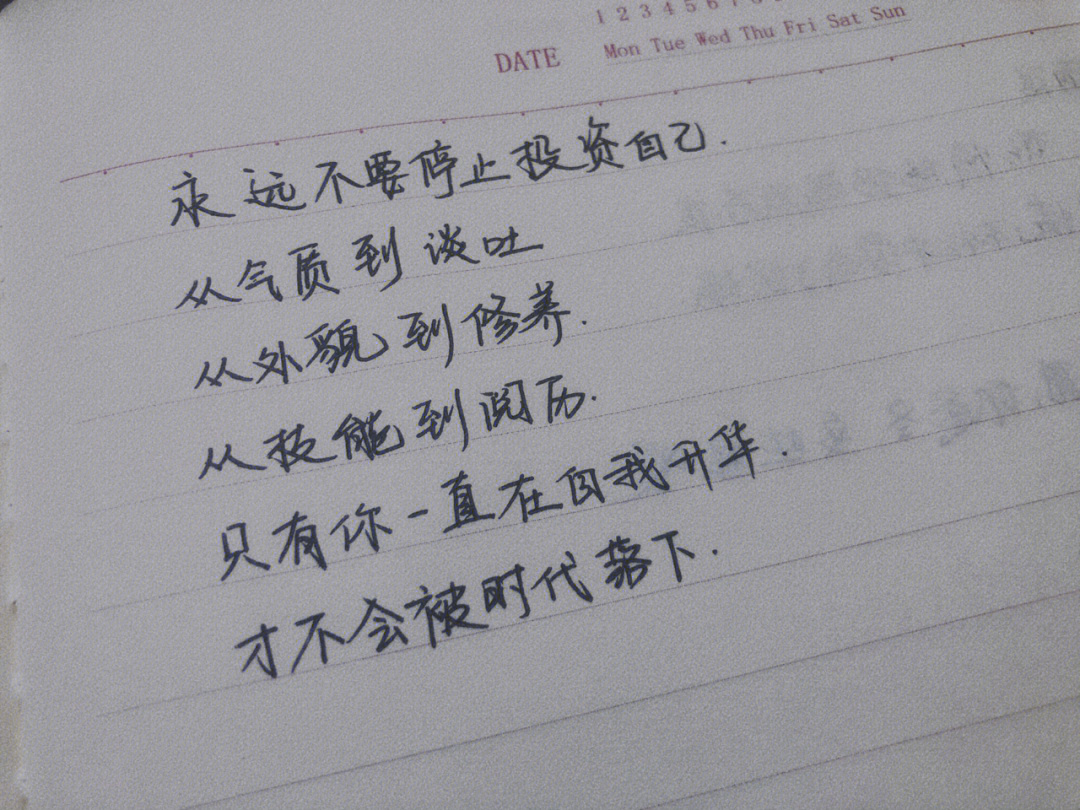 1 2 3 4 5 6 7 8
DATE Mon Tue Wed Thu Fri Sat Sun
永远不要停止投资自己.
从气质到谈吐
从外貌到修养.
从技能到阅历.
只有你一直在自我升华.
才不会被时代落下.